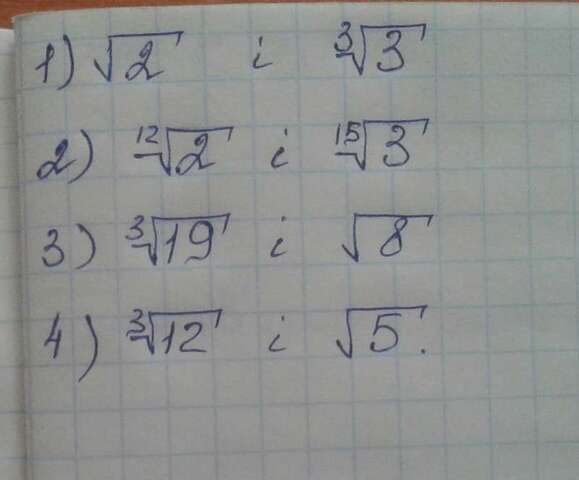 1) √2 і ³√3
2) ¹²√2 і ¹⁵√3
3) ³√19 і √8
4) ³√12 і √5.